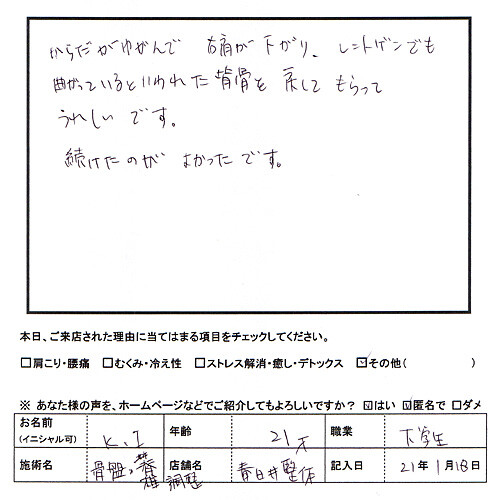 からだがゆがんで 右肩が下がり、レントゲンでも
曲がっているといわれた背骨を 戻して もらって
うれしい です。
続けたのが よかった です。
本日、ご来店された理由に当てはまる項目をチェックしてください。
□肩こり・腰痛 □むくみ・冷え性 □ストレス解消・癒し・デトックス ☑その他( )
※ あなた様の声を、ホームページなどでご紹介してもよろしいですか? ☑はい ☑匿名で □ダメ
お名前
(イニシャル可) K.I 年齢 21才 職業 大学生
施術名 骨盤 店舗名 春日井整体 記入日 21年1月18日